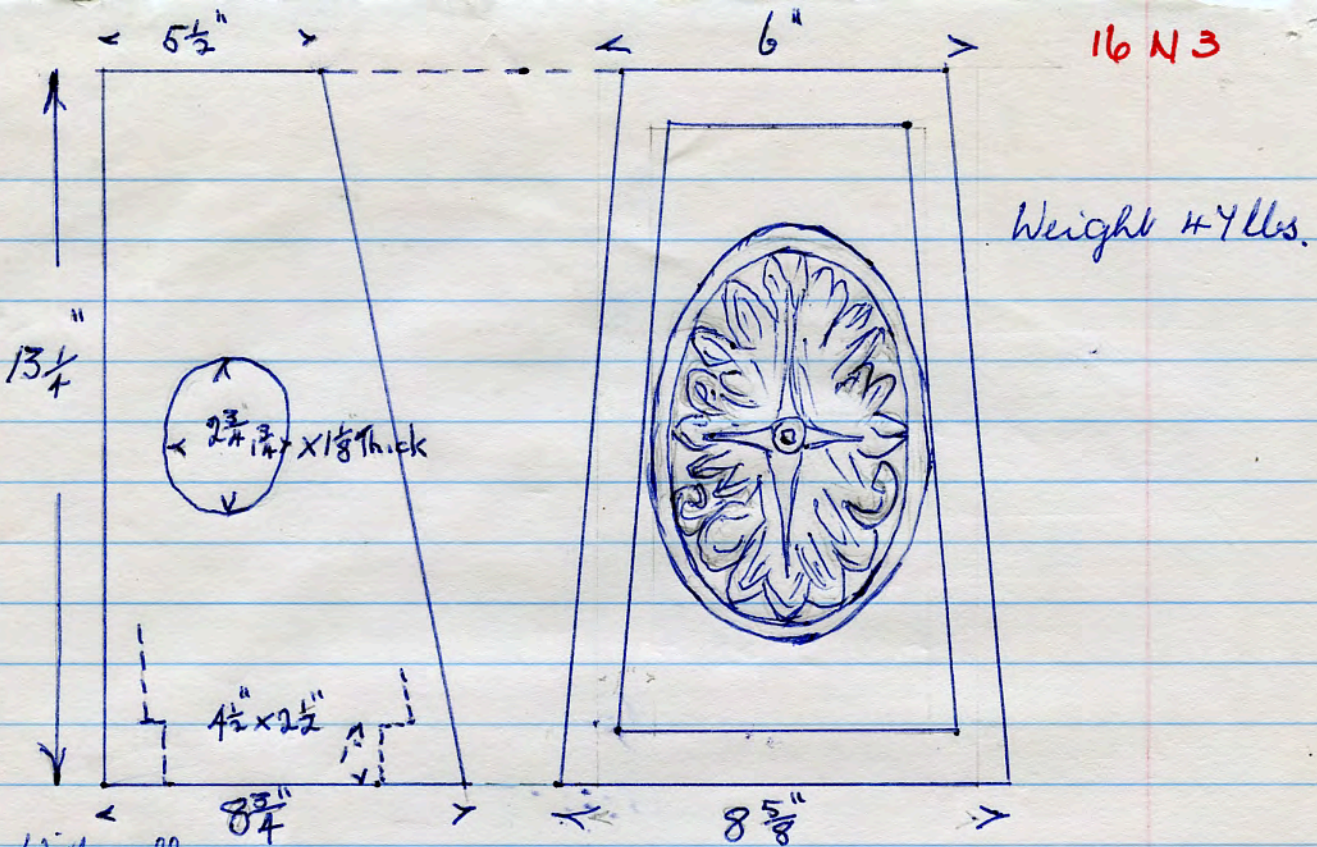 5½"
6"
16 N 3
Weight 47 lbs.
13¼"
2¾ 1¾ x 1⅛ Thick
4½" x 2½"
8¾"
8⅝"